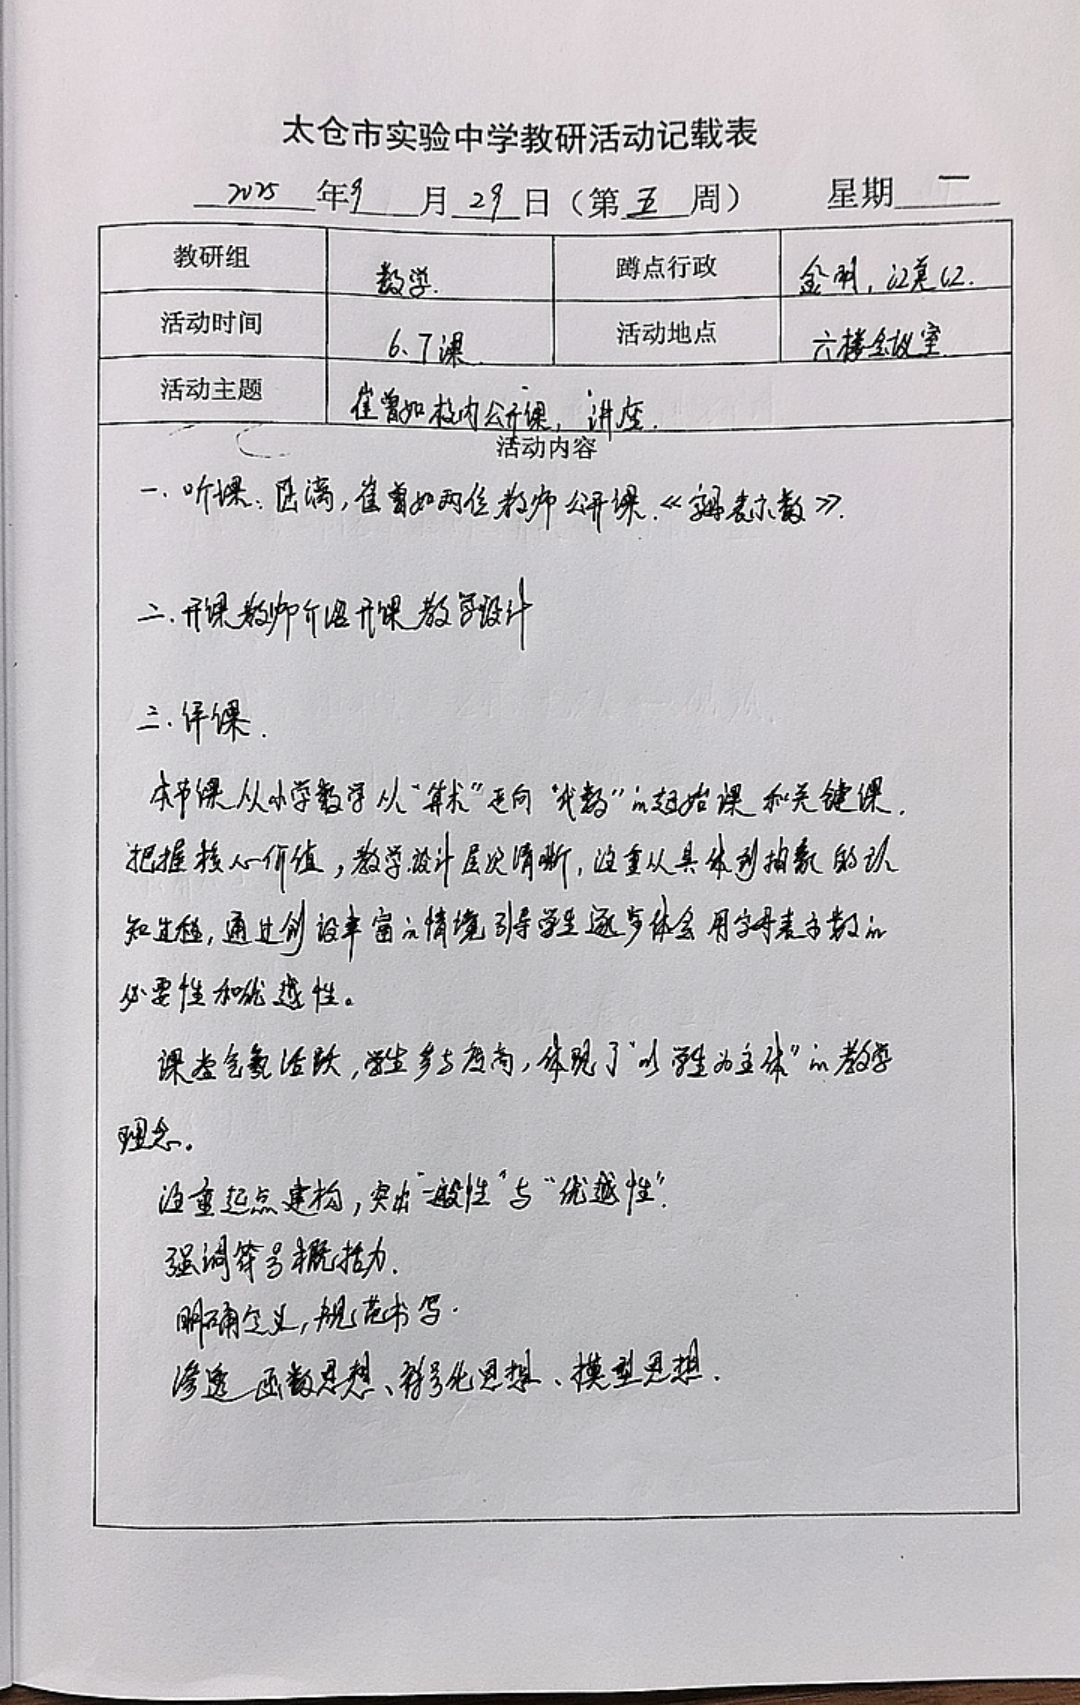 太仓市实验中学教研活动记载表
2025 年 9 月 29 日（第 五 周） 星期 一
教研组 数学. 蹲点行政 金明,
活动时间 6、7课 活动地点 六楼会议室
活动主题 崔曾如校内公开课，讲座.
活动内容
一. 听课: 陆漓, 崔曾如两位教师公开课.《字母表示数》.
二. 开课教师介绍开课教学设计
三. 评课.
本节课从小学数学从“算术”走向“代数”的起始课和关键课.
把握核心价值，教学设计层次清晰，注重从具体到抽象的认
知过程，通过创设丰富的情境引导学生逐步体会用字母表示数的
必要性和优越性。
课堂气氛活跃，学生参与度高，体现了“以学生为主体”的教学
理念。
注重起点建构，突出“一般性”与“优越性”.
强调符号概括力.
明确定义，规范书写.
渗透函数思想、符号化思想、模型思想.